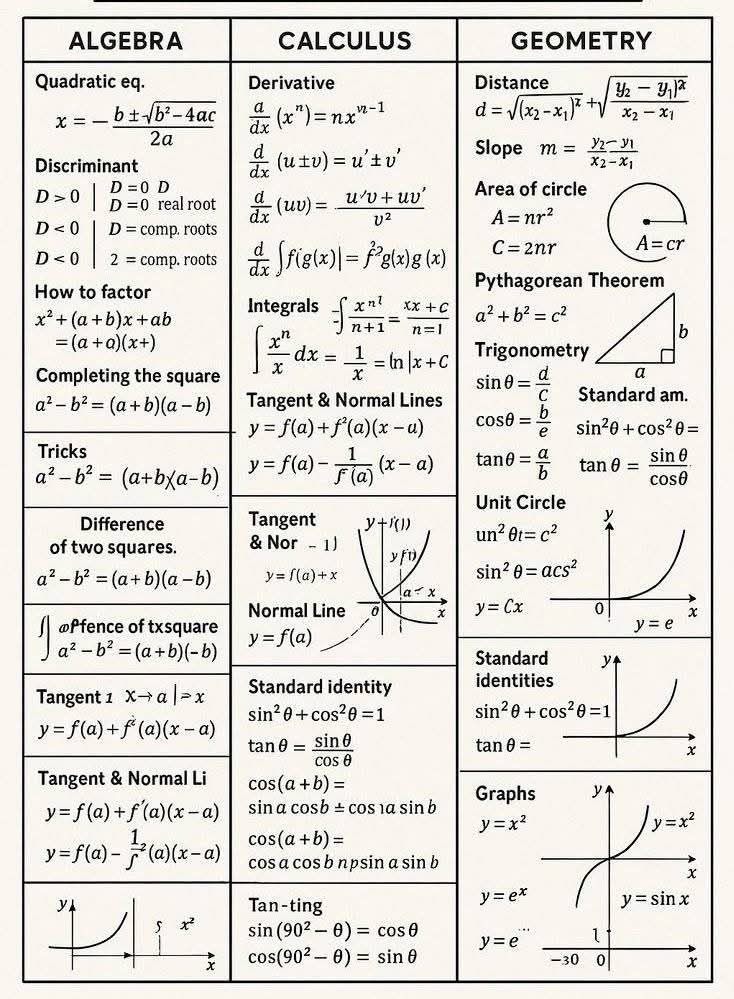 ALGEBRA
Quadratic eq.
x = − b ± √b² − 4ac / 2a
Discriminant
D > 0 | D = 0 D
D = 0 real root
D < 0 | D = comp. roots
D < 0 | 2 = comp. roots
How to factor
x² + (a + b)x + ab
= (a + a)(x+)
Completing the square
a² − b² = (a + b)(a − b)
Tricks
a² − b² = (a+b)(a−b)
Difference
of two squares.
a² − b² = (a + b)(a − b)
of txsquare
a² − b² = (a + b)(−b)
Tangent 1 x → a | = x
y = f(a) + f (a)(x − a)
Tangent & Normal Li
y = f(a) + f′(a)(x − a)
y = f(a) − 1/f ²(a)(x − a)
y
x²
x
CALCULUS
Derivative
a/dx (xⁿ) = nx^(n−1)
d/dx (u±v) = u′ ± v′
d/dx (uv) = u′v + uv′ / v²
d/dx ∫ f(g(x)| = g(x)g (x)
Integrals
n + 1 = xx + c / n = 1
∫ xⁿ/x dx = 1/x = ln |x + C
Tangent & Normal Lines
y = f(a) + f²(a)(x − a)
y = f(a) − 1/f (a) (x − a)
Tangent
& Nor − 1)
y = f(a) + x
Normal Line
y = f(a)
θ
x
Standard identity
sin² θ + cos² θ = 1
tan θ = sin θ / cos θ
cos(a + b) =
sin a cos b ± cos ıa sin b
cos(a + b) =
cos a cos b npsin a sin b
Tan-ting
sin (90² − θ) = cos θ
cos(90² − θ) = sin θ
GEOMETRY
Distance
d = √(x₂ − x₁)² + √y₂ − y₁)² / x₂ − x₁
Slope m = y₂ − y₁ / x₂ − x₁
Area of circle
A = nr²
C = 2nr
A = cr
Pythagorean Theorem
a² + b² = c²
b
a
Trigonometry
sin θ = d/c
Standard am.
cos θ = b/e
sin² θ + cos² θ =
tan θ = a/b
tan θ = sin θ / cos θ
Unit Circle
y
un² θt = c²
sin² θ = acs²
y = Cx
0
x
y = e
Standard
identities
y
sin² θ + cos² θ = 1
tan θ =
x
Graphs
y
y = x²
y = x²
x
y = eˣ
y = sin x
y = e
−30 0
x